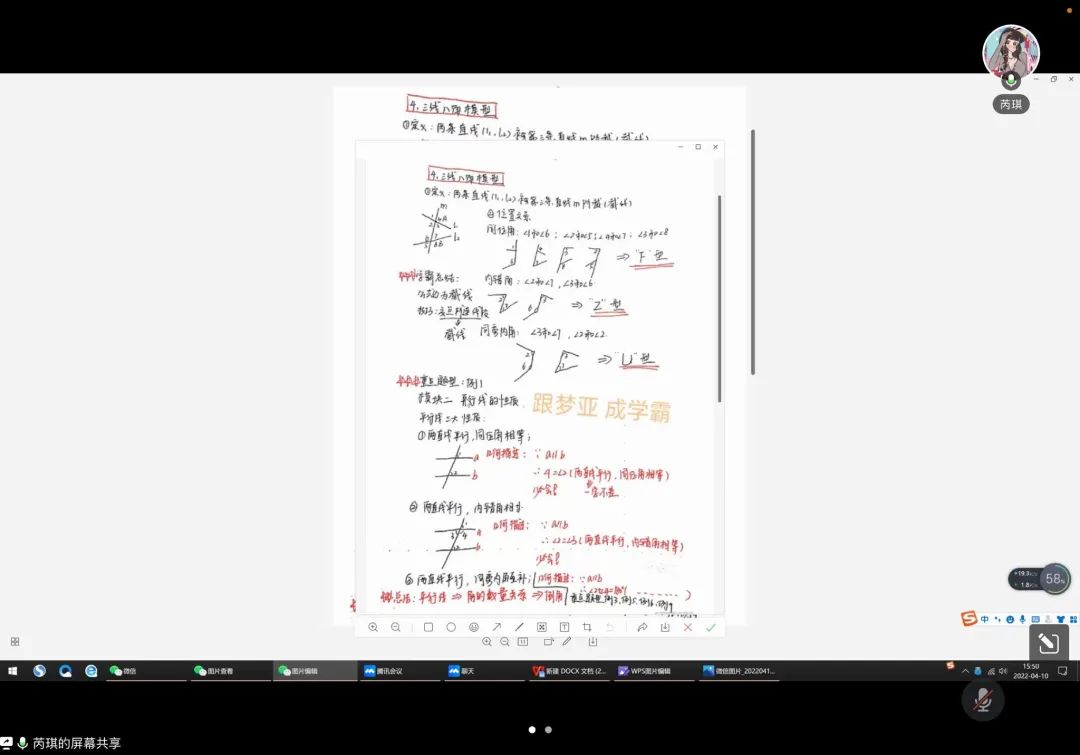 芮琪
4.三线八角模型
①定义:两条直线(l₁,l₂)被第三条直线m所截(截线)
4.三线八角模型
①定义:两条直线(l₁,l₂)被第三条直线m所截(截线)
②位置关系
同位角:∠1和∠6;∠2和∠5;∠4和∠7;∠3和∠8
⇒"F"型
学霸总结:
内错角:∠2和∠7,∠3和∠6
公共边为截线
⇒"Z"型
截线
同旁内角:∠3和∠7,∠2和∠2
⇒"U"型
重点题型:例1
模块二 平行线的性质
跟梦亚 成学霸
平行线三大性质:
①两直线平行,同位角相等;
a
b
几何描述:∵a∥b
∴∠1=∠2(两直线平行,同位角相等)
必会!
②两直线平行,内错角相等
a
b
几何描述:∵a∥b
∴∠2=∠3(两直线平行,内错角相等)
必会!
③两直线平行,同旁内角互补;
几何描述:∵a∥b
总结:平行线⇒角的数量关系⇒倒角
58%
中
微信
图片查看
图片编辑
腾讯会议
聊天
新建 DOCX 文档 (2...
WPS图片编辑
微信图片_2022041...
15:50
2022-04-10
芮琪的屏幕共享